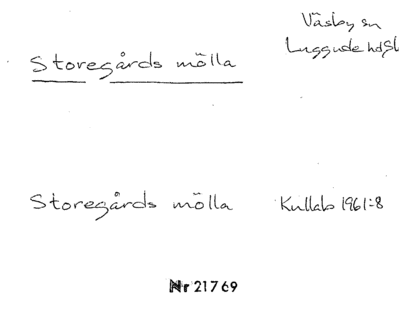 Väsby sn
Luggude hd Sk
Storegårds mölla
Storegårds mölla Kullab 1961:8
Nr 21769